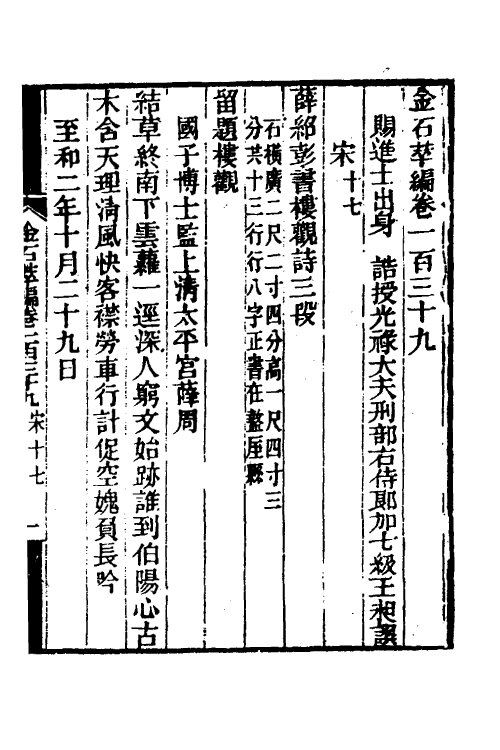 金石萃編卷一百三十九
賜進士出身　誥授光祿大夫刑部右侍郎加七級王昶譔
宋十七
薛紹彭書樓觀詩三段
石橫廣二尺二寸四分高一尺四寸三
分共十三行行八字正書在盩厔縣
留題樓觀
國子博士監上清太平宮薛周
結草終南下雲蘿一逕深人窮文始跡誰到伯陽心古
木含天理清風快客襟勞車行計促空媿負長吟
至和二年十月二十九日
金石萃編卷一百三十九　宋十七　一